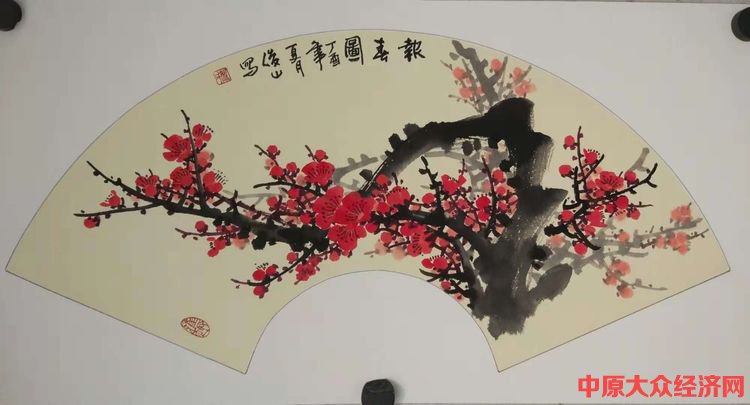 報春圖
丁酉年
夏月
俊山
寫
中原大众经济网